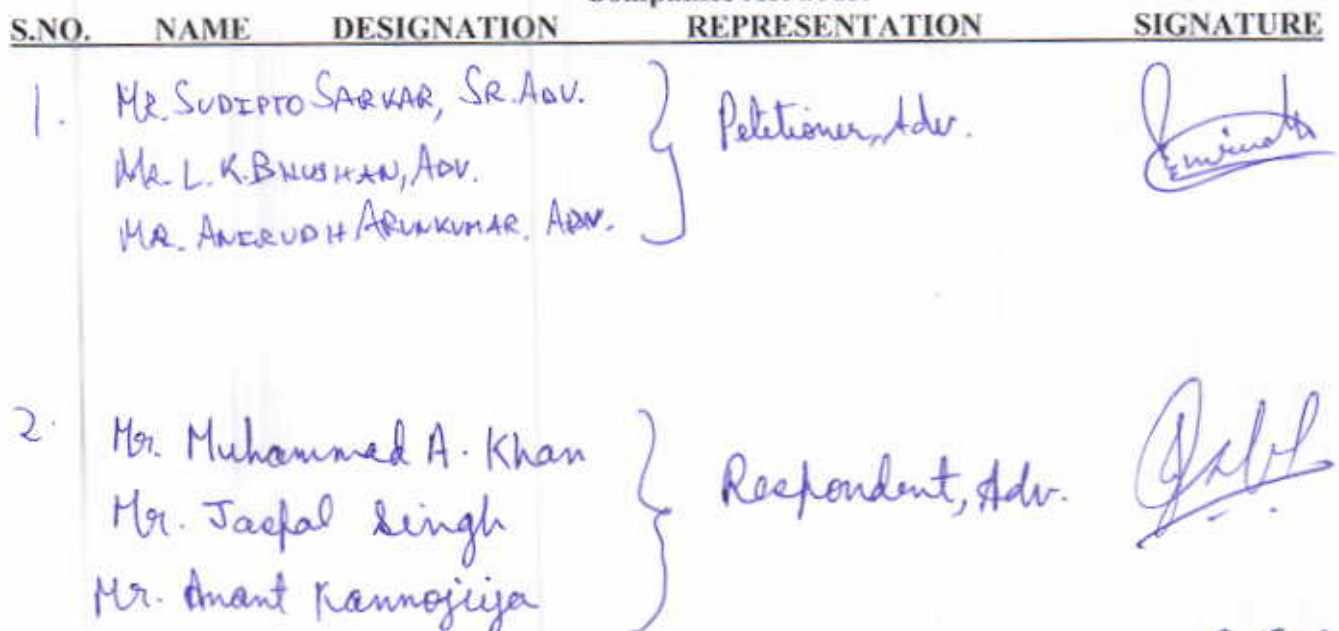 S.NO. NAME DESIGNATION REPRESENTATION SIGNATURE
1. MR. SUDIPTO SARKAR, SR. ADV.
MR. L. K. BHUSHAN, ADV.
MR. ANIRUDH ARUNKUMAR, ADV.
Petitioner, Adv.
2. Mr. Muhammad A. Khan
Mr. Jaspal Singh
Mr. Anant Kannojiya
Respondent, Adv.